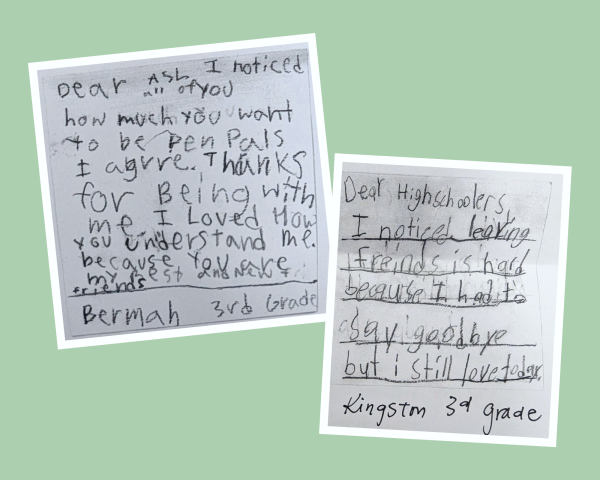 Dear ASL I noticed
all of you
how much you want
to be pen pals
I agrre. Thanks
for Being with
me I Loved How
you understand me.
because you are
my best
friends
Bermah 3rd Grade
Dear Highschoolers,
I noticed leaving
freinds is hard
because I had to
say goodbye
but i still love today.
Kingston 3rd grade